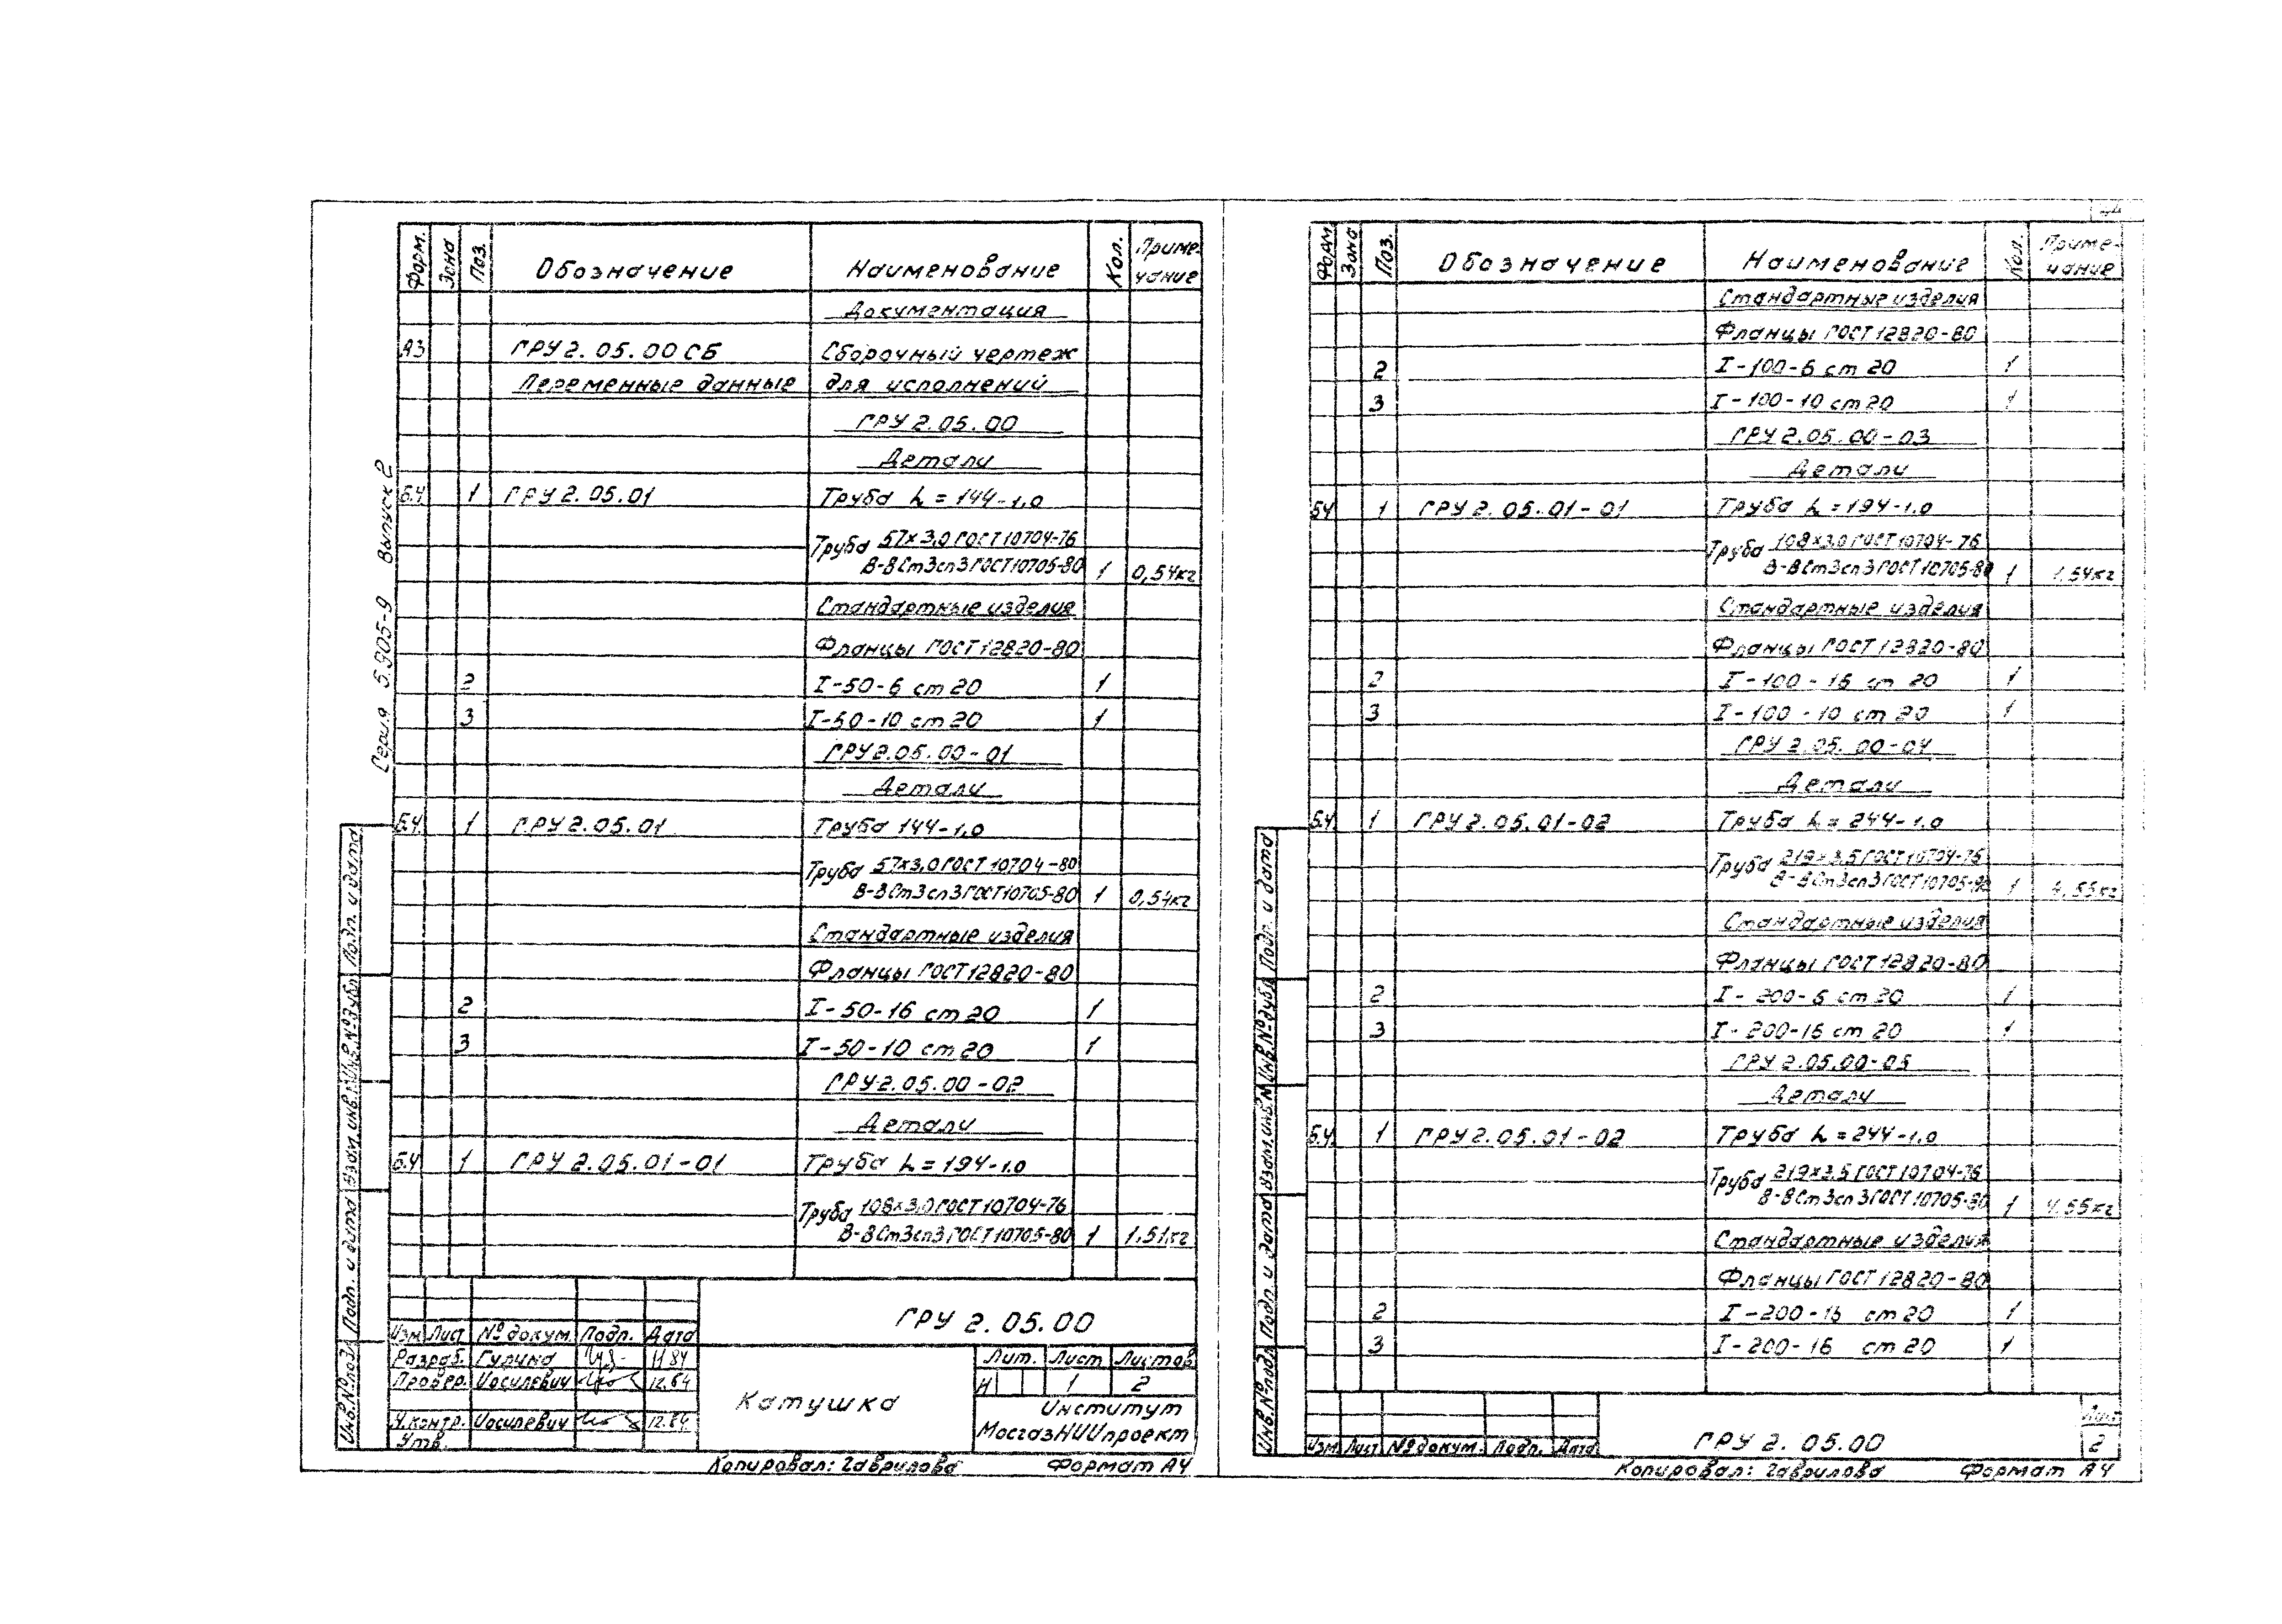 Серия 5.905-9 Выпуск 2
Форм. Зона Поз. Обозначение Наименование Кол. Приме-
чание
Документация
А3 ГРУ 2.05.00 СБ Сборочный чертеж
Переменные данные для исполнений
ГРУ 2.05.00
Детали
Б.Ч. 1 ГРУ 2.05.01 Труба L = 144-1,0
Труба 57×3,0 ГОСТ 10704-76
В-В Ст3сп3 ГОСТ 10705-80 1 0,54кг
Стандартные изделия
Фланцы ГОСТ 12820-80
2 I-50-6 ст 20 1
3 I-50-10 ст 20 1
ГРУ 2.05.00-01
Детали
Б.Ч. 1 ГРУ 2.05.01 Труба 144-1,0
Труба 57×3,0 ГОСТ 10704-80
В-В Ст3сп3 ГОСТ 10705-80 1 0,54кг
Стандартные изделия
Фланцы ГОСТ 12820-80
2 I-50-16 ст 20 1
3 I-50-10 ст 20 1
ГРУ 2.05.00-02
Детали
Б.Ч. 1 ГРУ 2.05.01-01 Труба L = 194-1,0
Труба 108×3,0 ГОСТ 10704-76
В-В Ст3сп3 ГОСТ 10705-80 1 1.51кг
ГРУ 2.05.00
Изм Лист № докум. Подп. Дата
Разраб. Гурина 11.84
Провер. Иосилевич 12.84
Н.контр. Иосилевич 12.84
Утв.
Катушка
Лит. Лист Листов
И 1 2
Институт
МосгазНИИпроект
Копировал: Гаврилова Формат А4
Инв.№подл Подп. и дата Взам.инв.№ Инв.№дубл Подп. и дата
Форм. Зона Поз. Обозначение Наименование Кол. Приме-
чание
Стандартные изделия
Фланцы ГОСТ 12820-80
2 I-100-6 ст 20 1
3 I-100-10 ст 20 1
ГРУ 2.05.00-03
Детали
Б.Ч. 1 ГРУ 2.05.01-01 Труба L = 194-1,0
Труба 108×3,0 ГОСТ 10704-76
В-В Ст3сп3 ГОСТ 10705-80 1 1,54кг
Стандартные изделия
Фланцы ГОСТ 12820-80
2 I-100-16 ст 20 1
3 I-100-10 ст 20 1
ГРУ 2.05.00-04
Детали
Б.Ч. 1 ГРУ 2.05.01-02 Труба L = 244-1,0
Труба 219×3,5 ГОСТ 10704-76
В-В Ст3сп3 ГОСТ 10705-80 1 4,55кг
Стандартные изделия
Фланцы ГОСТ 12820-80
2 I-200-6 ст 20 1
3 I-200-16 ст 20 1
ГРУ 2.05.00-05
Детали
Б.Ч. 1 ГРУ 2.05.01-02 Труба L = 244-1,0
Труба 219×3,5 ГОСТ 10704-76
В-В Ст3сп3 ГОСТ 10705-80 1 4,55кг
Стандартные изделия
Фланцы ГОСТ 12820-80
2 I-200-16 ст 20 1
3 I-200-16 ст 20 1
Изм Лист № докум. Подп. Дата
ГРУ 2.05.00
Лист
2
Копировал: Гаврилова Формат А4
Инв.№подл Подп. и дата Взам.инв.№ Инв.№дубл Подп. и дата